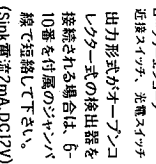 近接スイッチ、光電スイッチ
出力形式がオープンコ
レクター式の検出器を
接続される場合は、6-
10番を付属のジャンパ
線で短絡して下さい。
(Sink電流7mA,DC12V)